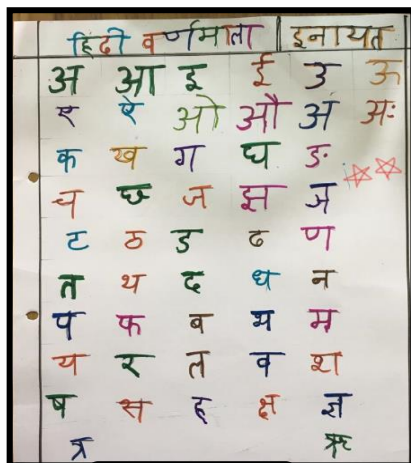 हिंदी वर्णमाला इनायत
अ आ इ ई उ ऊ
ए ऐ ओ औ अं अः
क ख ग घ ङ
च छ ज झ ञ
ट ठ ड ढ ण
त थ द ध न
प फ ब भ म
य र ल व श
ष स ह क्ष ज्ञ
त्र ऋ